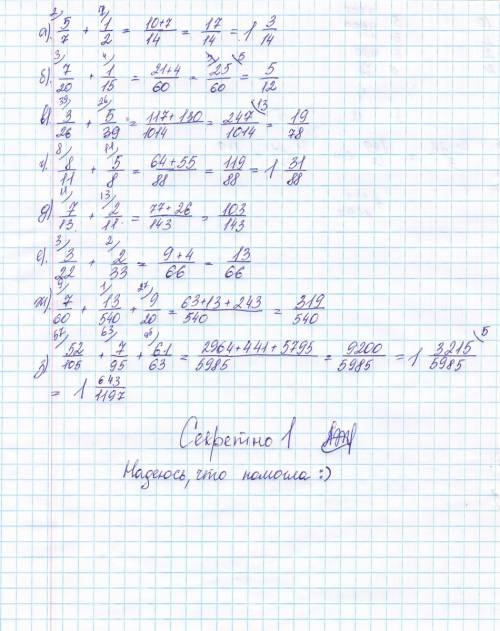 а). 2/ 5/7 + 7/ 1/2 = 10+7/14 = 17/14 = 1 3/14
б). 3/ 7/20 + 4/ 1/15 = 21+4/60 = 25/60 (5 = 5/12
в) 39/ 3/26 + 26/ 5/39 = 117+130/1014 = 247/1014 (13 = 19/78
г). 8/ 8/11 + 11/ 5/8 = 64+55/88 = 119/88 = 1 31/88
д) 11/ 7/13 + 13/ 2/11 = 77+26/143 = 103/143
е). 3/ 3/22 + 2/ 2/33 = 9+4/66 = 13/66
ж) 9/ 7/60 + 1/ 13/540 + 27/ 9/20 = 63+13+243/540 = 319/540
з) 57/ 52/105 + 63/ 7/95 + 95/ 61/63 = 2964+441+5795/5985 = 9200/5985 = 1 3215/5985 (5
= 1 643/1197
Секретно 1
Надеюсь, что помогла :)